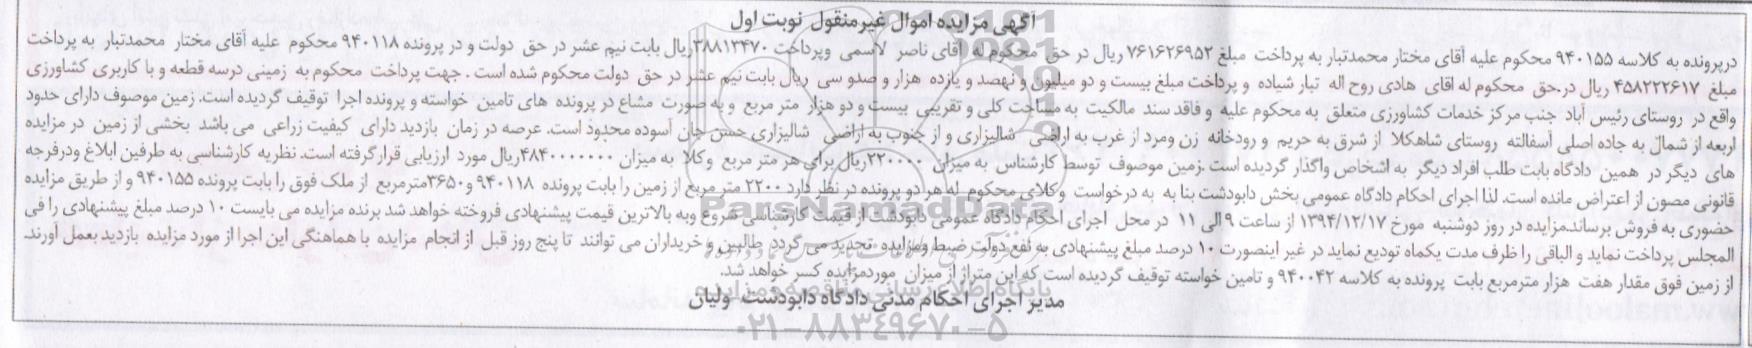 آگهی مزایده اموال غیرمنقول نوبت اول
درپرونده به کلاسه ۹۴۰۱۵۵ محکوم علیه آقای مختار محمدتبار به پرداخت مبلغ ۷۶۱۶۲۶۹۵۲ ریال در حق محکوم له آقای ناصر لاسمی وپرداخت ۳۸۸۱۳۴۷۰ریال بابت نیم عشر در حق دولت و در پرونده ۹۴۰۱۱۸ محکوم علیه آقای مختار محمدتبار به پرداخت
مبلغ ۴۵۸۲۲۲۶۱۷ ریال در.حق محکوم له اقای هادی روح اله تبار شیاده و پرداخت مبلغ بیست و دو میلیون و نهصد و یازده هزار و صدو سی ریال بابت نیم عشر در حق دولت محکوم شده است . جهت پرداخت محکوم به زمینی درسه قطعه و با کاربری کشاورزی
واقع در روستای رئیس آباد جنب مرکز خدمات کشاورزی متعلق به محکوم علیه و فاقد سند مالکیت به مساحت کلی و تقریبی بیست و دو هزار متر مربع و به صورت مشاع در پرونده های تامین خواسته و پرونده اجرا توقیف گردیده است. زمین موصوف دارای حدود
اربعه از شمال به جاده اصلی آسفالته روستای شاهکلا از شرق به حریم و رودخانه زن ومرد از غرب به اراضی شالیزاری و از جنوب به اراضی شالیزاری حسن جان آسوده محدود است. عرصه در زمان بازدید دارای کیفیت زراعی می باشد بخشی از زمین در مزایده
های دیگر در همین دادگاه بابت طلب افراد دیگر به اشخاص واگذار گردیده است .زمین موصوف توسط کارشناس به میزان ۲۲۰۰۰۰ریال برای هر متر مربع وکلا به میزان ۴۸۴۰۰۰۰۰۰۰ریال مورد ارزیابی قرارگرفته است. نظریه کارشناسی به طرفین ابلاغ ودرفرجه
قانونی مصون از اعتراض مانده است. لذا اجرای احکام دادگاه عمومی بخش دابودشت بنا به به درخواست وکلای محکوم له هر دو پرونده در نظر دارد ۲۲۰۰ متر مربع از زمین را بابت پرونده ۹۴۰۱۱۸ و۳۶۵۰مترمربع از ملک فوق را بابت پرونده ۹۴۰۱۵۵ و از طریق مزایده
حضوری به فروش برساند.مزایده در روز دوشنبه مورخ ۱۳۹۴/۱۲/۱۷ از ساعت ۹ الی ۱۱ در محل اجرای احکام دادگاه عمومی دابودشت از قیمت کارشناسی شروع وبه بالاترین قیمت پیشنهادی فروخته خواهد شد برنده مزایده می بایست ۱۰ درصد مبلغ پیشنهادی را فی
المجلس پرداخت نماید و الباقی را ظرف مدت یکماه تودیع نماید در غیر اینصورت ۱۰ درصد مبلغ پیشنهادی به نفع دولت ضبط ومزایده تجدید می گردد طالبین و خریداران می توانند تا پنج روز قبل از انجام مزایده با هماهنگی این اجرا از مورد مزایده بازدید بعمل آورند.
از زمین فوق مقدار هفت هزار مترمربع بابت پرونده به کلاسه ۹۴۰۰۴۲ و تامین خواسته توقیف گردیده است که این متراژ از میزان موردمزایده کسر خواهد شد.
مدیر اجرای احکام مدنی دادگاه دابودشت ولیان
ParsNamadData
پایگاه اطلاع رسانی مناقصه و مزایده
۰۲۱-۸۸۳۴۹۶۷۰-۵